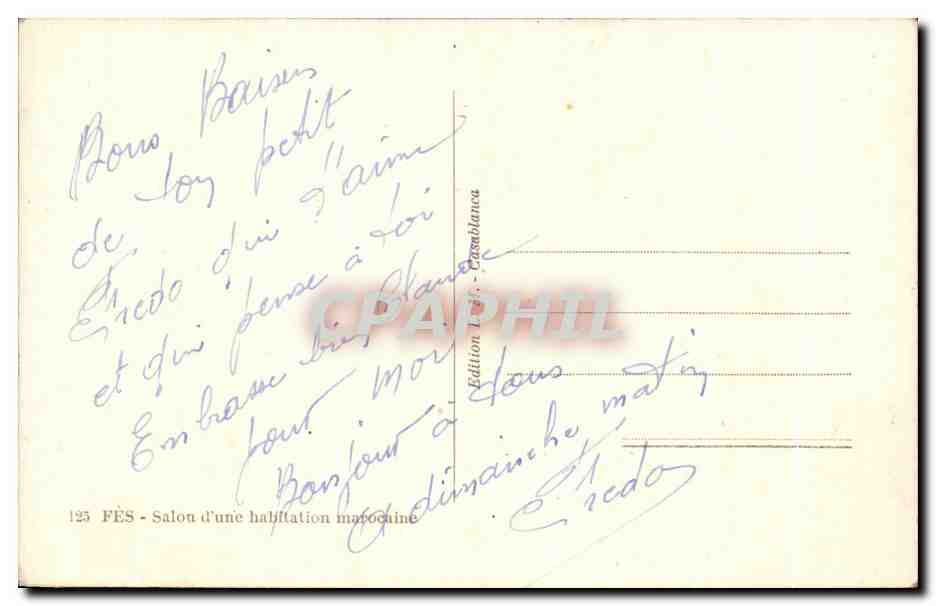 Bons Baisers
de ton petit
Fredo qui t'aime
et qui pense à toi
Embrasse bien
pour moi
Bonjour à tous
a dimanche matin
Fredo
125 FÈS - Salon d'une habitation marocaine
Edition - Casablanca
CPAPHIL